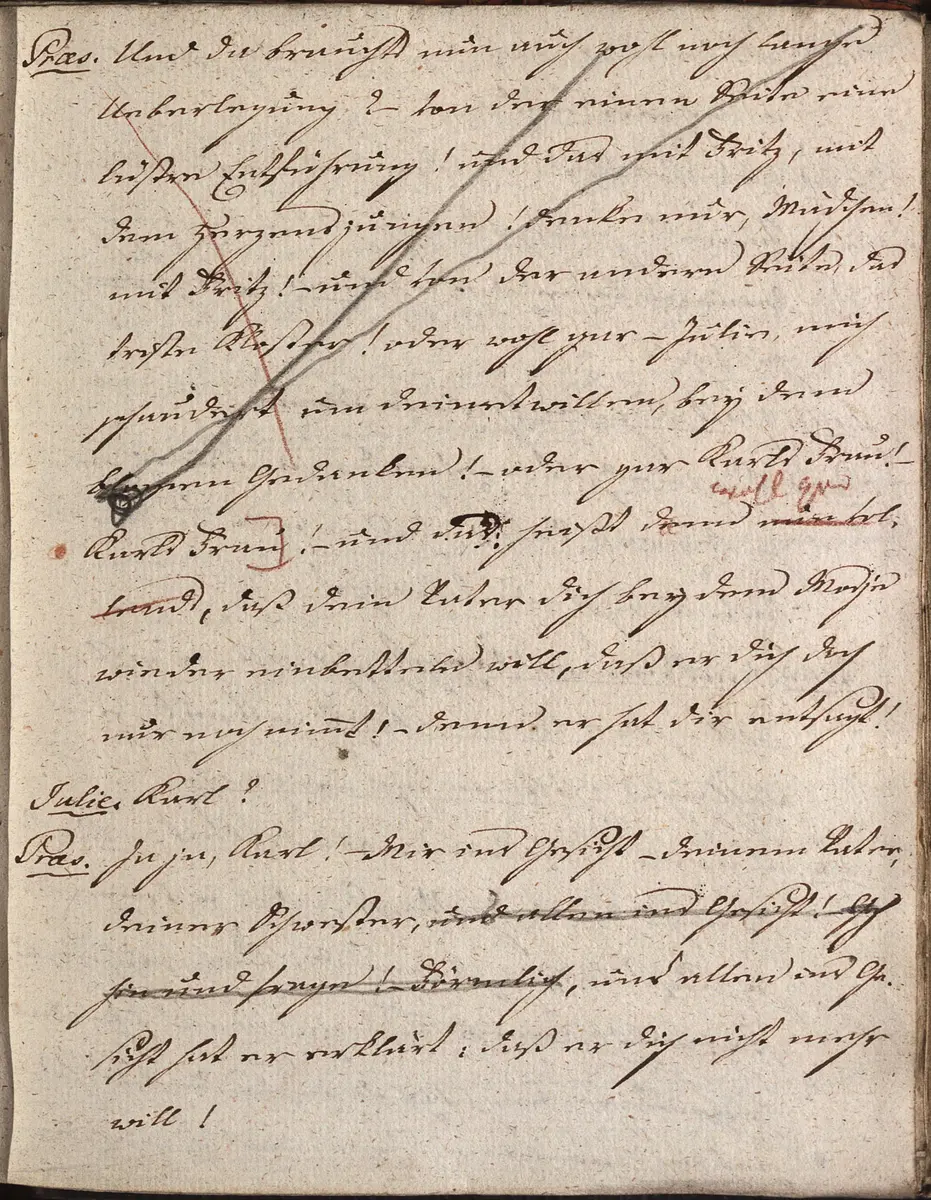 Præs. Und da brauchts nun auch wohl noch lange
Ueberlegung? – von der einen Seite eine
lüstre Entführung! und das mit Fritz, mit
dem Herzensjungen! denke nur, Mädchen!
mit Fritz! – und von der andern Seite, das
triste Kloster! oder wohl gar – Julie, mich
schaudert um deinetwillen, bey dem
bloßen Gedanken! – oder gar Karls Frau! –
wohl gar
Karls Frau]! – und das heißt denn nun vol-
lends, daß dein Vater dich bey dem Mosje
wieder einbetteln will, daß er dich doch
nur noch nimmt! – denn er hat dir entsagt!
Julie. Karl?
Præs. Ja ja, Karl! – Mir ins Gesicht – deinem Vater,
deiner Schwester, uns allen ins Gesicht! Geh
hin und frage! – Förmlich, uns allen ins Ge-
sicht hat er erklärt: daß er dich nicht mehr
will!